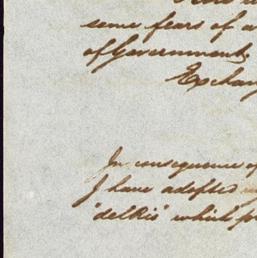 some fears of a
of Government
Exchan
In consequence of
I have adopted
"delkis" which pr